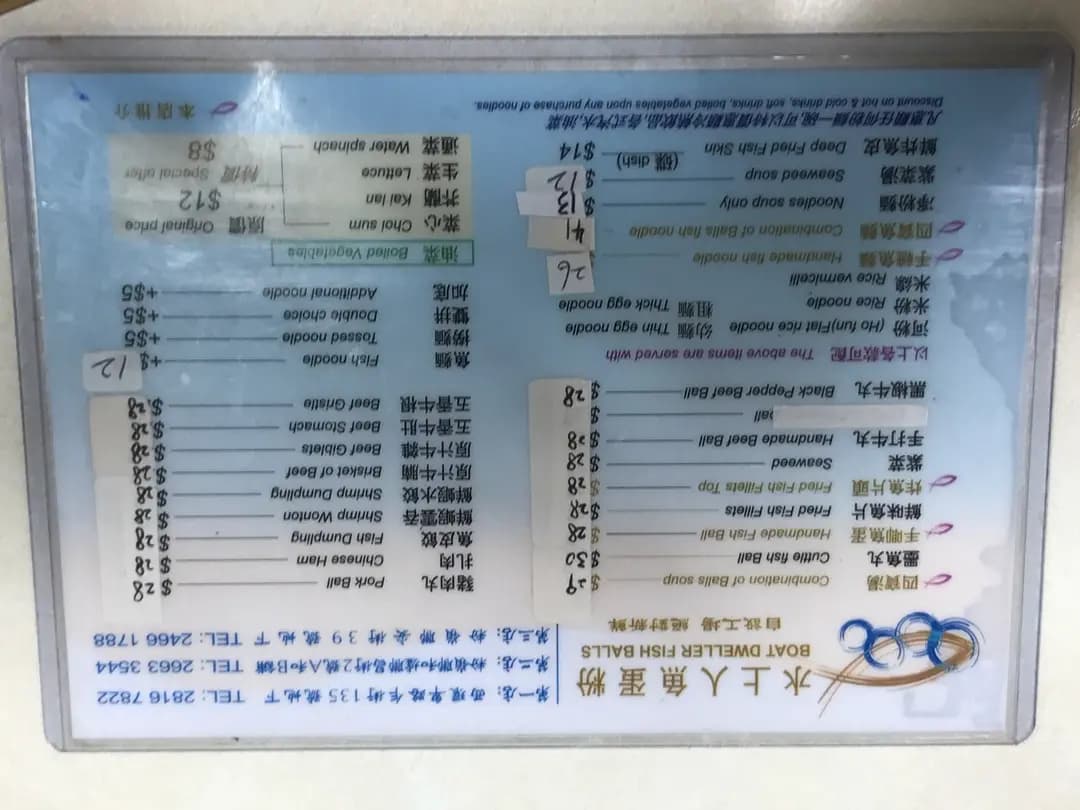 水上人魚蛋粉
BOAT DWELLER FISH BALLS
自設工場 絕對新鮮
第一店: 西環卑路乍街135號地下 TEL: 2816 7822
第二店: 粉嶺聯和墟 2號A和B鋪 TEL: 2663 3544
第三店: 粉嶺聯安街39號地下 TEL: 2466 1788
四寶湯 Combination of Balls soup $29
墨魚丸 Cuttle fish Ball $30
手唧魚蛋 Handmade Fish Ball $28
鮮味魚片 Fried Fish Fillets $28
炸魚片頭 Fried Fish Fillets Top $28
紫菜 Seaweed $28
手打牛丸 Handmade Beef Ball $28
Ball $
黑椒牛丸 Black Pepper Beef Ball $28
以上各款可配 The above items are served with
河粉 (Ho fun)Flat rice noodle 幼麵 Thin egg noodle
米粉 Rice noodle 粗麵 Thick egg noodle
米線 Rice vermicelli
手撻魚麵 Handmade fish noodle 26
四寶魚麵 Combination of Balls fish noodle 41
淨粉麵 Noodles soup only $13
紫菜湯 Seaweed soup $12
鮮炸魚皮 Deep Fried Fish Skin (碟 dish) $14
凡惠顧任何粉麵一碗,可以特價惠顧冷熱飲品,各式汽水,油菜
Discount on hot & cold drinks, soft drinks, boiled vegetables upon any purchase of noodles.
豬肉丸 Pork Ball $28
扎肉 Chinese Ham $28
魚皮餃 Fish Dumpling $28
鮮蝦雲吞 Shrimp Wonton $28
鮮蝦水餃 Shrimp Dumpling $28
原汁牛腩 Brisket of Beef $28
原汁牛雜 Beef Giblets $28
五香牛肚 Beef Stomach $28
五香牛根 Beef Gristle $28
魚麵 Fish noodle +$12
撈麵 Tossed noodle +$5
雙拼 Double choice +$5
加底 Additional noodle +$5
油菜 Boiled Vegetables
菜心 Choi sum 原價 Original price
芥蘭 Kai lan $12
生菜 Lettuce 特價 Special offer
通菜 Water spinach $8
本店推介